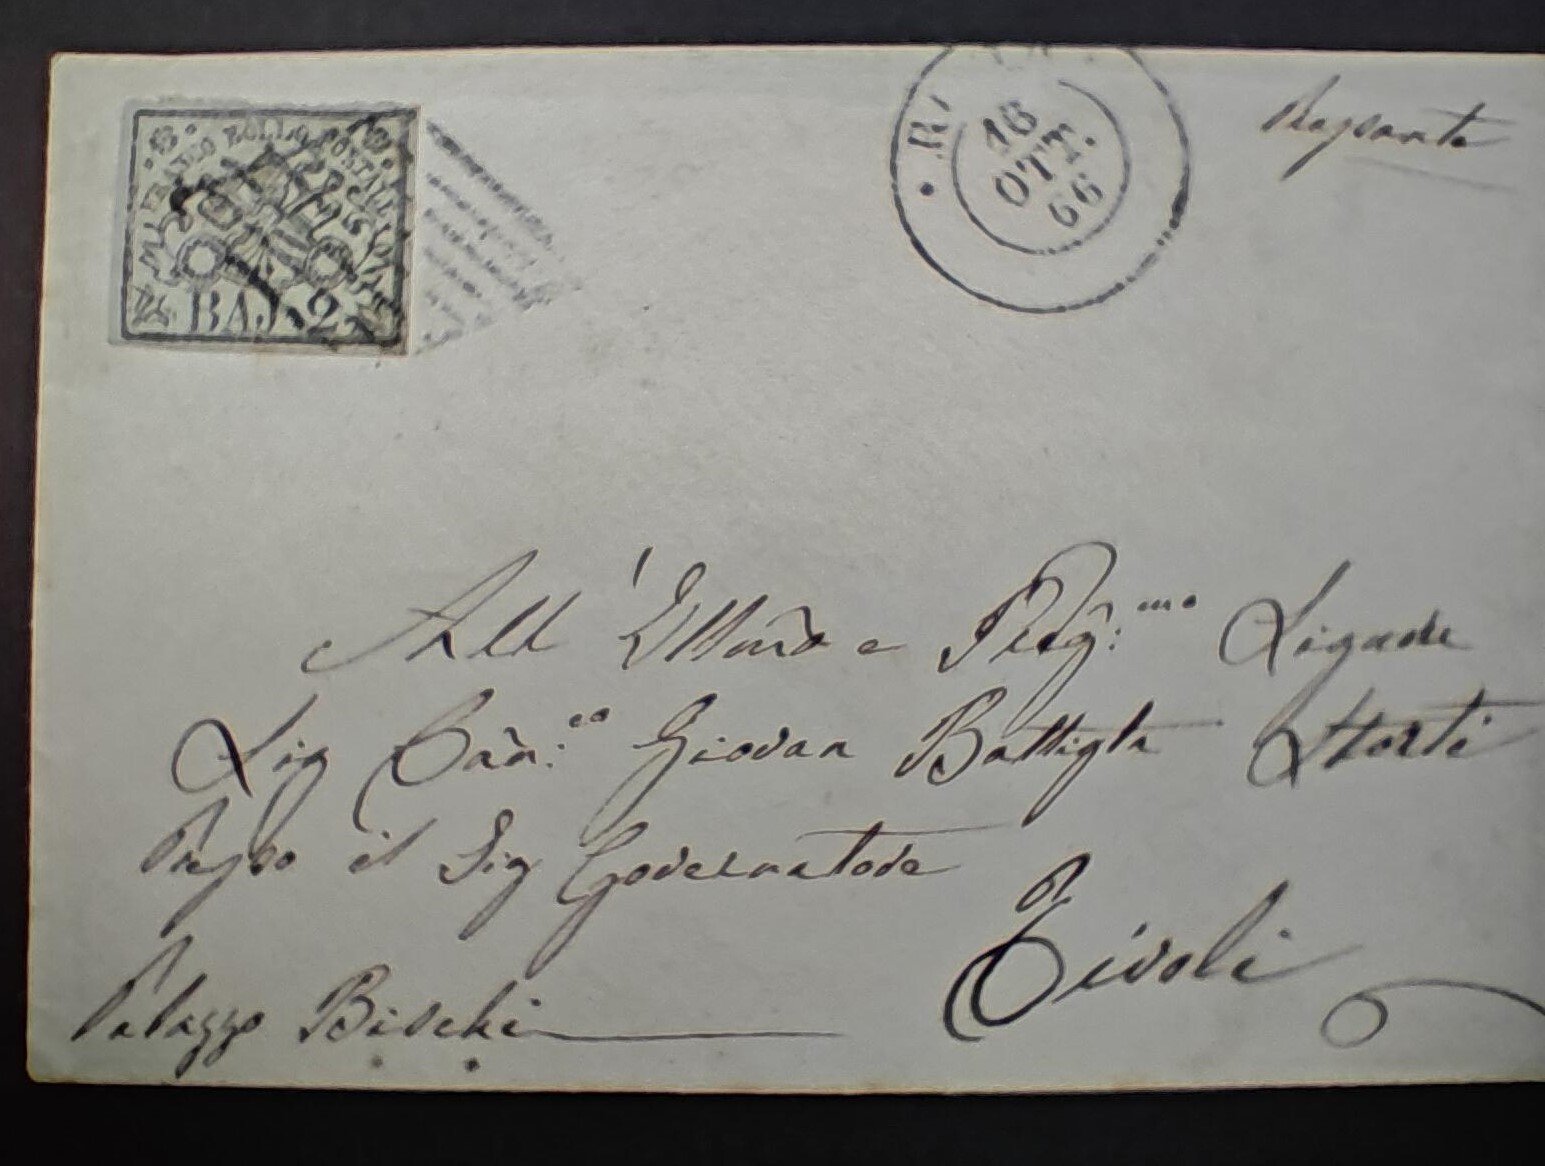 FRANCO BOLLO POSTALE
BAJ. 2
16
OTT.
66
All' Illmo e Revg:mo Sigore
Sig Can:co Giovan Battista Storti
Presso il Sig Governatore
Tivoli
Palazzo Bischi